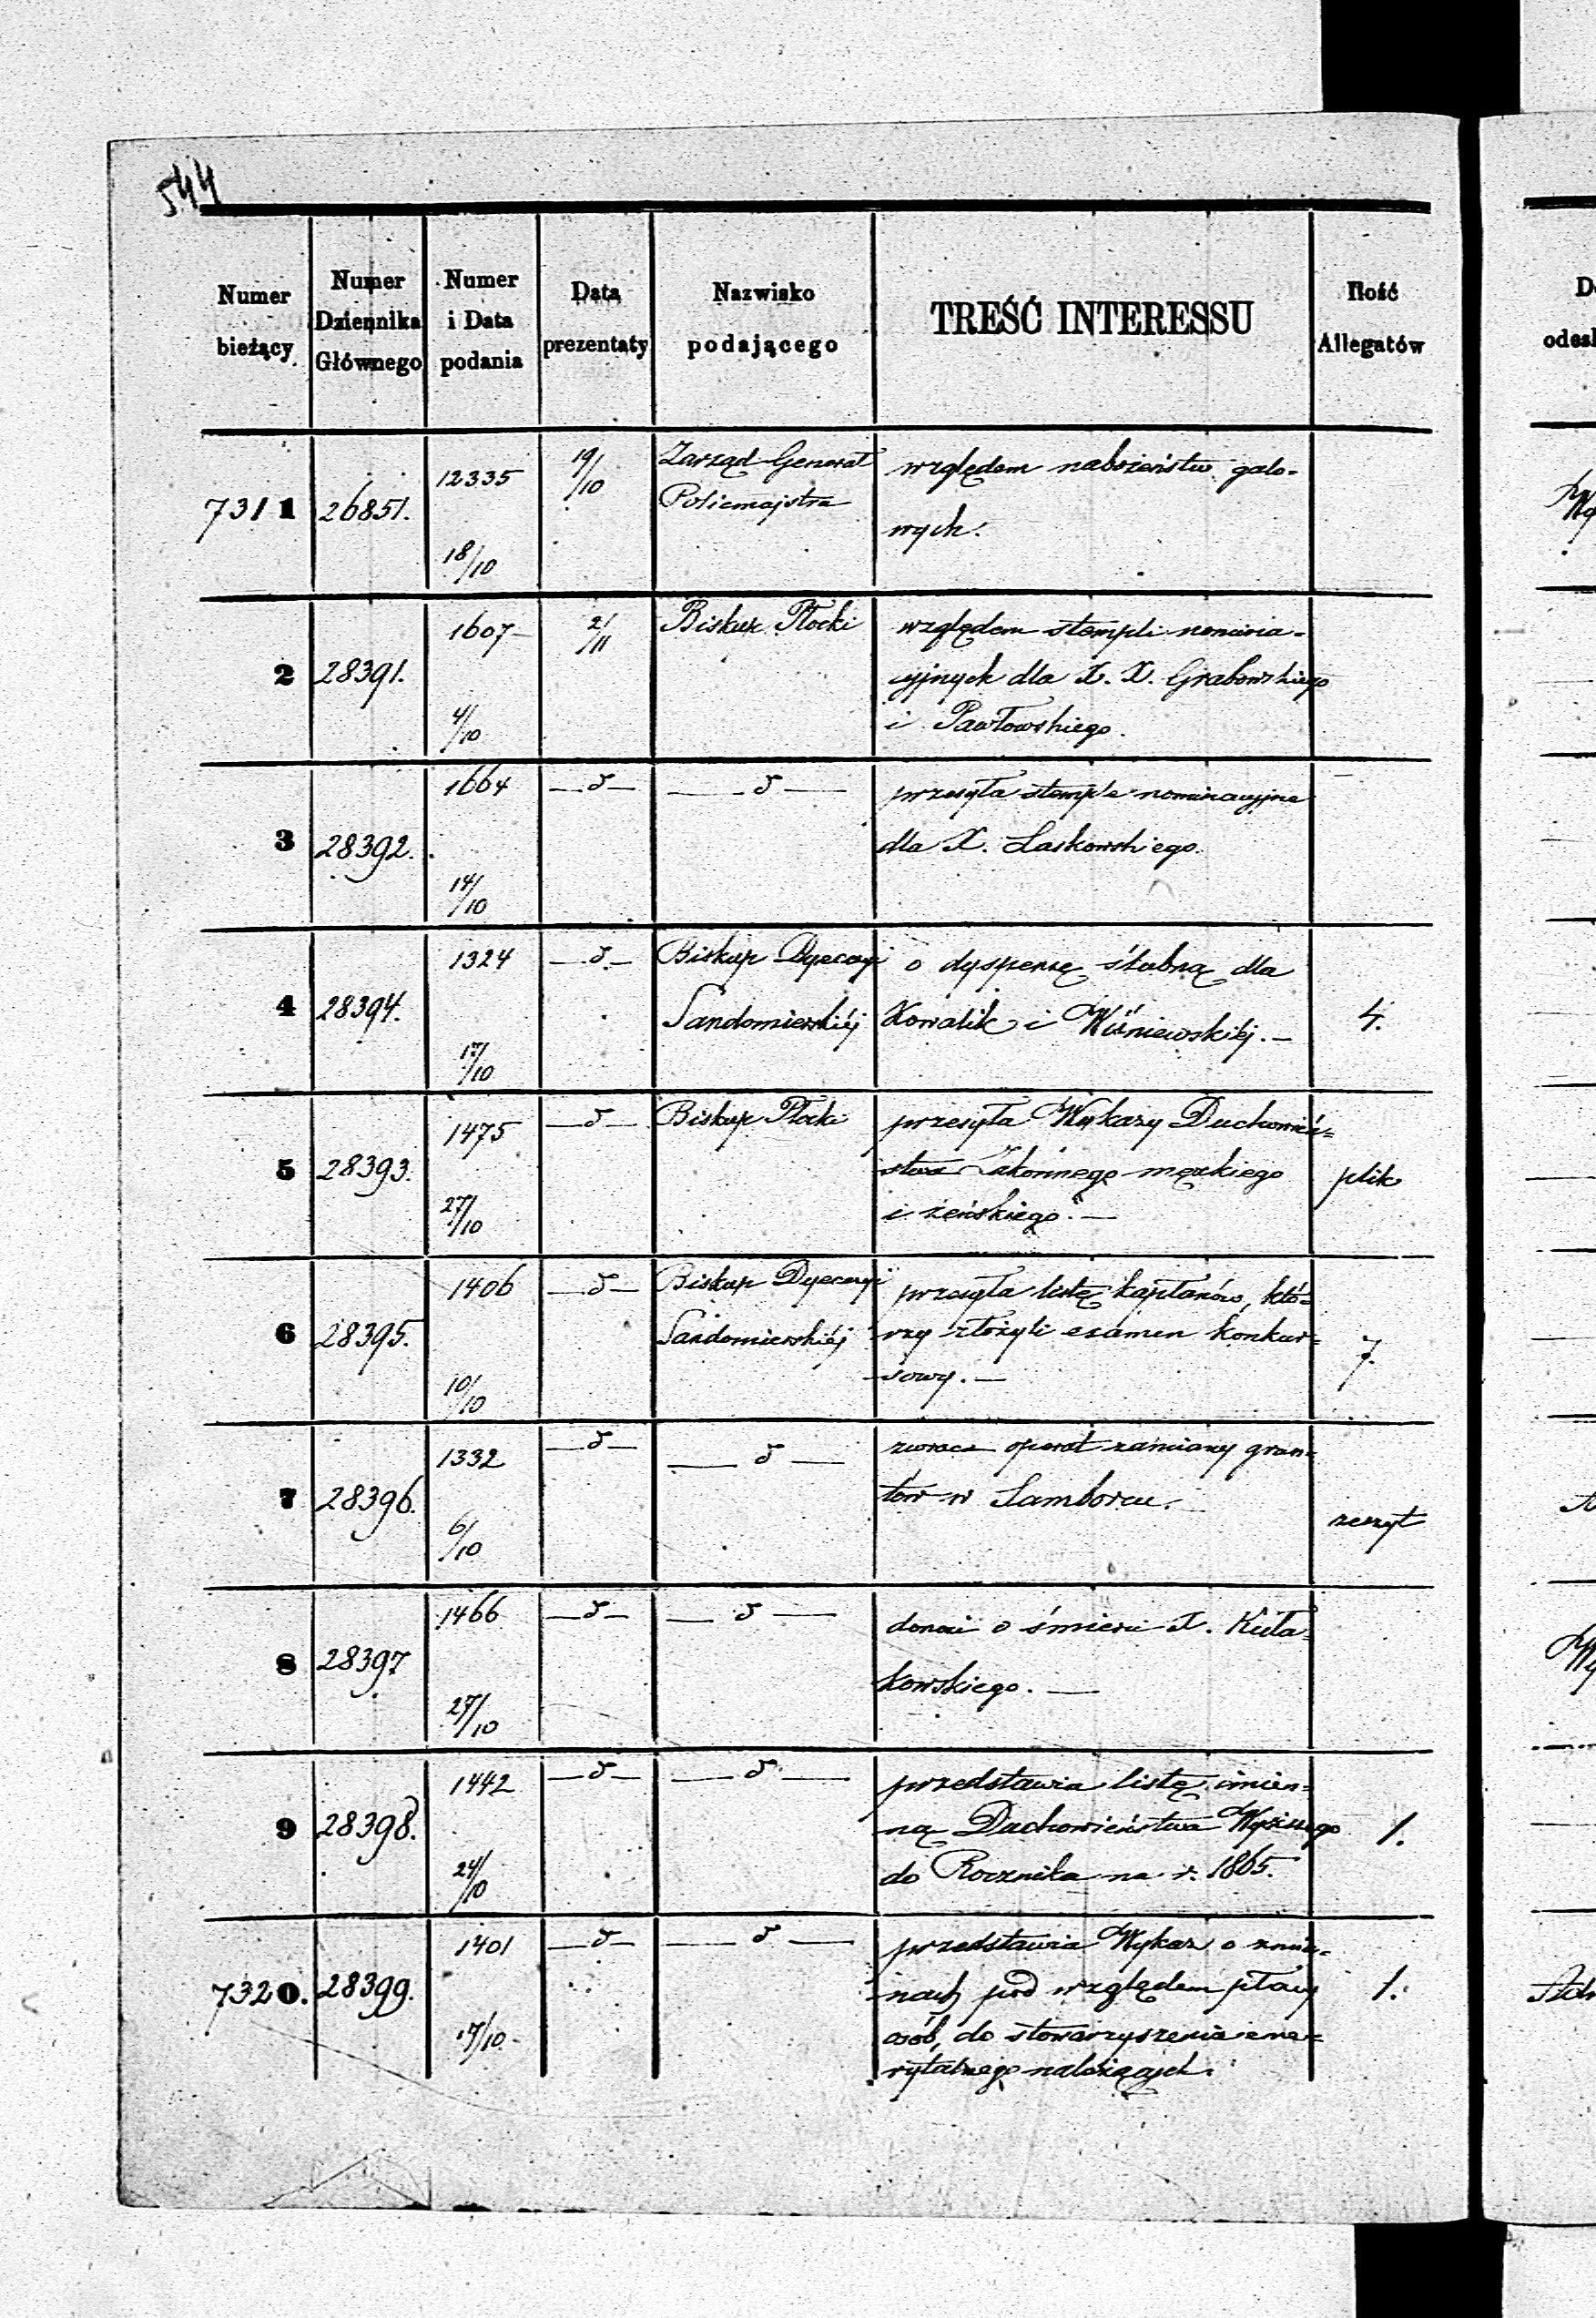 544
Numer bieżący
Numer Dziennika Głównego
Numer i Data podania
Data prezentaty
Nazwisko podającego
TREŚĆ INTERESSU
Ilość Allegatów
7311
26851.
12335
18/10
19/10
Zarząd Generał
Policmajstra
względem nabożeństw galo-
wych.
2
28391.
1607
4/10
2/11
Biskup Płocki
względem stempli nomina-
cyjnych dla X. X. Grabowskiego
i Pawłowskiego.
3
28392.
1664
14/10
— d —
— d —
przesyła stemple nominacyjne
dla X. Laskowskiego.
4
28394.
1324
17/10
— d —
Biskup Dyecezyi
Sandomierskiéj
o dyspensę ślubną dla
Kowalik i Wiśniewskiéj. —
4.
5
28393.
1475
27/10
— d —
Biskup Płocki
przesyła Wykazy Duchowień-
stwa Zakonnego męzkiego
i żeńskiego. —
plik
6
28395.
1406
10/10
— d —
Biskup Dyecezyi
Sandomierskiéj
przesyła listę kapłanów, któ-
rzy złożyli examen konkur-
sowy. —
7.
7
28396.
1332
6/10
— d —
— d —
zwraca operat zamiany grun-
tów w Samborcu.
zeszyt
8
28397
1466
27/10
— d —
— d —
donosi o śmierci X. Kuła-
kowskiego. —
9
28398.
1442
24/10
— d —
— d —
przedstawia listę imien-
ną Duchowieństwa Wyższego
do Rocznika na r. 1865.
1.
7320.
28399.
1401
17/10
— d —
— d —
przedstawia Wykaz o zmia-
nach pod względem płacy
osób, do stowarzyszenia eme-
rytalnego należących.
1.